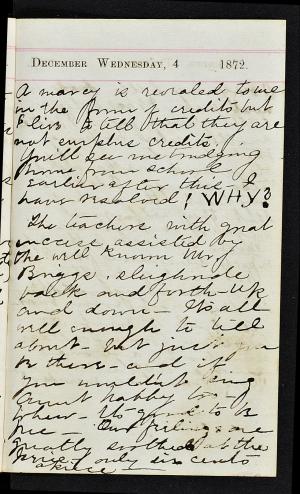 December Wednesday, 4 1872.
A marcy is revealed to me
in the form of credits but
live to tell that they are
not surplus credits.
You'll see me trudging
home from school
earlier after this - I
have resolved! WHY?
The teachers with great
assisted by
the well known Mr
Briggs, sleighride
back and forth - Up
and down - Its all
well enough to tell
about - but just you
be there - and if
you wouldn't sing
to
Its good to be
free - Our feelings are
greatly soothed at the
price - only six cents
apiece -